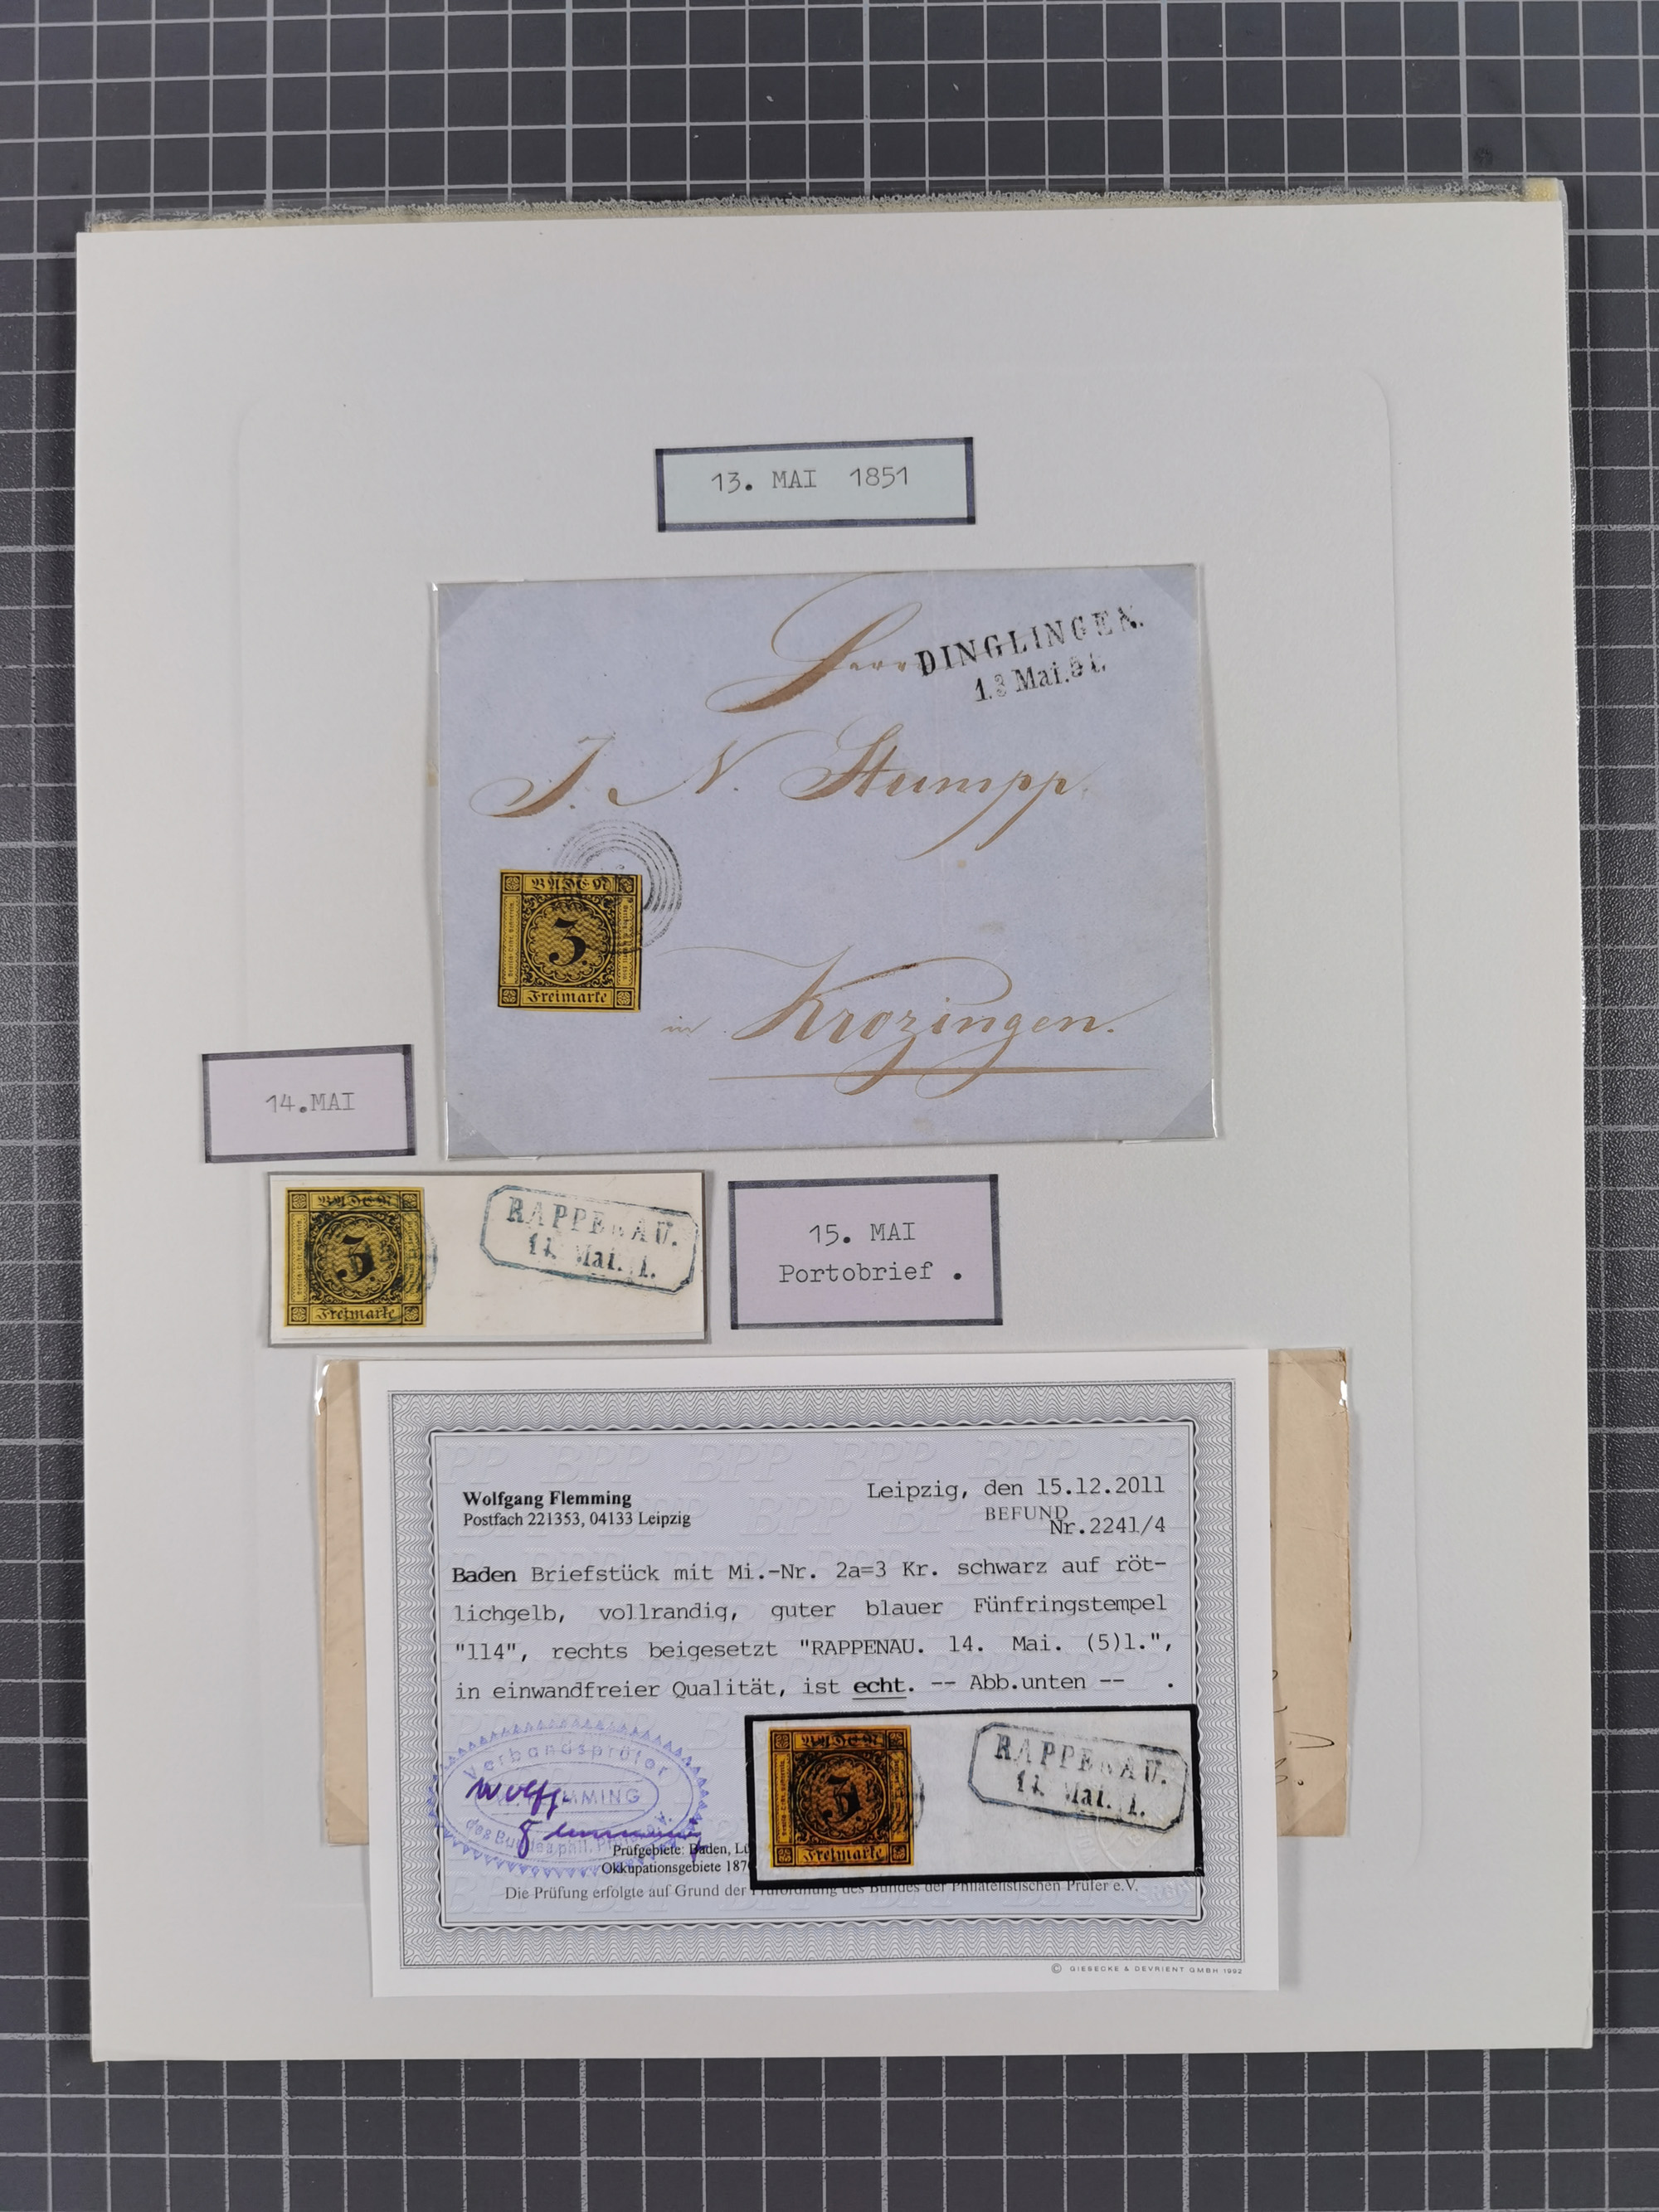 13. MAI 1851
Herrn
DINGLINGEN.
13 Mai.51.
J. N. Stumpp.
BADEN
3.
Freimarke
in Krozingen.
14.MAI
BADEN
3
Freimarke
RAPPENAU.
14. Mai. 1.
15. MAI
Portobrief .
Wolfgang Flemming
Postfach 221353, 04133 Leipzig
Leipzig, den 15.12.2011
BEFUND
Nr.2241/4
Baden Briefstück mit Mi.-Nr. 2a=3 Kr. schwarz auf röt-
lichgelb, vollrandig, guter blauer Fünfringstempel
"114", rechts beigesetzt "RAPPENAU. 14. Mai. (5)1.",
in einwandfreier Qualität, ist echt. -- Abb.unten -- .
Verbandsprüfer
FLEMMING
des Bundes phil.
Wolfg. Flemming
BADEN
3
Freimarke
RAPPENAU.
14. Mai. 1.
Prüfgebiete: Baden, Lü
Okkupationsgebiete 187
Die Prüfung erfolgte auf Grund der Prüfordnung des Bundes der Philatelistischen Prüfer e.V.
© GIESECKE & DEVRIENT GMBH 1992